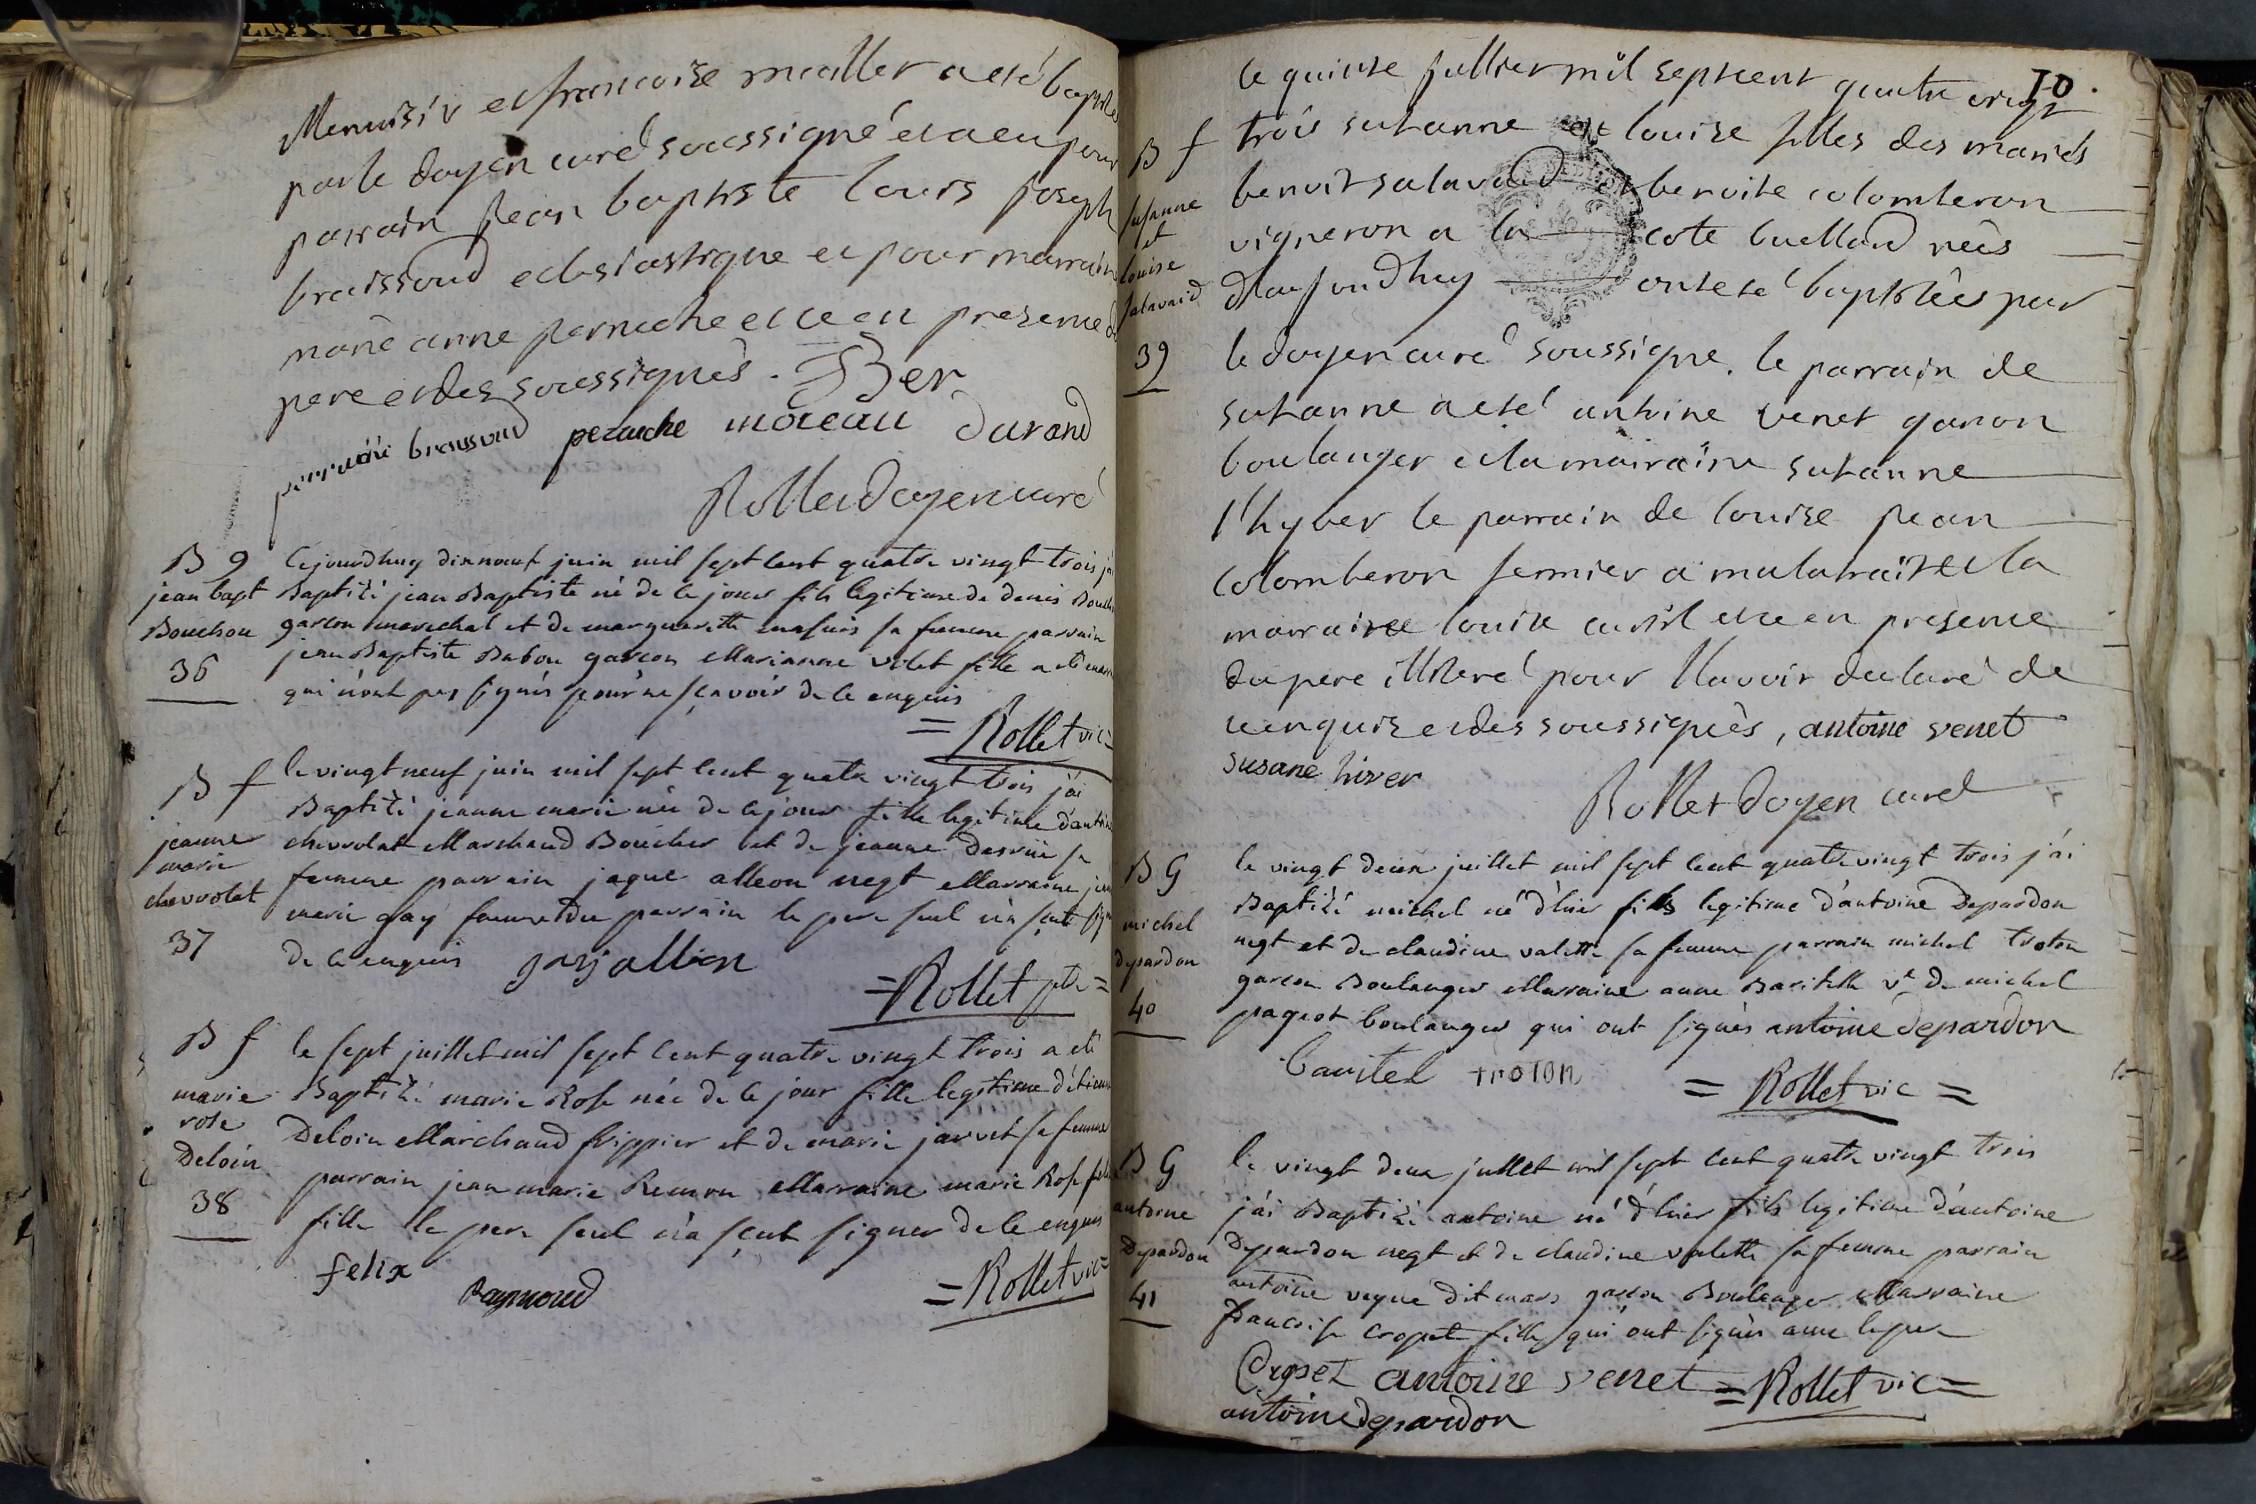 Menuisier et francoise miallet a eté baptisé
par le doyen curé soussigné et a eu pour
parrain Jean baptiste louis joseph
braissoud eclesiastique et pour marraine
marie anne perruche et ce en presence du
pere et des soussignés. Ber
perruche moreau Durand
Rollet doyen curé
B g
jean bapt
Bouchou
36
Cejourdhuy dixneuf juin mil sept cent quatre vingt trois j'ai
Baptizé jean Baptiste né de ce jour fils legitime de denis Bouchou
garcon marechal et de marguerette sa femme parrain
jean Baptiste Babou garcon Marianne fille a été
qui n'ont pas signés pour ne sçavoir de ce enquis
= Rollet vic =
B f
jeanne
marie
chevrolat
37
le vingt neuf juin mil sept cent quatre vingt trois j'ai
Baptizé jeanne marie née de ce jour fille legitime d'antoine
chevrolat Marchand Boucher et de jeanne sa
femme parrain jaque alleon negt Marraine
marie gay femme du parrain le pere seul n'a sçut signer
de ce enquis gay allion
= Rollet ptre =
B f
marie
rose
Deloin
38
le sept juillet mil sept cent quatre vingt trois a été
Baptizé marie Rose née de ce jour fille legitime d'étienne
Deloin Marchand frippier et de marie jarvet sa femme
parrain jean marie Remon Marraine marie Rose felix
fille le pere seul n'a sçut signer de ce enquis
felix Raymond
= Rollet vic =
10.
B f
susanne
et
louise
salavaid
39
le quinze juillier mil septcent quatre vingt
trois suzanne et louise filles des mariés
benoit salavaid et benoite colomberon
vigneron a la cote buelland neés
d'aujourdhuy ont eté baptisées par
le doyen curé soussigné. le parrain de
suzanne a eté antoine venet garcon
boulanger et la mairaine suzanne
l'hyver le parrain de louise jean
colomberon fermier a et la
marraine louise et ce en presence
du pere illiteré pour l'avoir declaré de
ce enquis et des soussignés, antoine venet
susane hiver
Rollet doyen curé
B G
michel
depardon
40
le vingt deux juillet mil sept cent quatre vingt trois j'ai
Baptizé michel né d'hier fils legitime d'antoine Depardon
negt et de claudine valette sa femme parrain michel troton
garcon Boulanger Marraine anne Baritelle ve de michel
paquot boulanger qui ont signés antoine depardon
baritel troton
= Rollet vic =
B G
antoine
Depardon
41
le vingt deux juillet mil sept cent quatre vingt trois
j'ai Baptizé antoine né d'hier fils legitime d'antoine
Depardon negt et de claudine valette sa femme parrain
antoine dit mars garcon Boulanger Marraine
francoise cropet fille qui ont signés avec le pere
Cropet antoine venet = Rollet vic =
antoine depardon